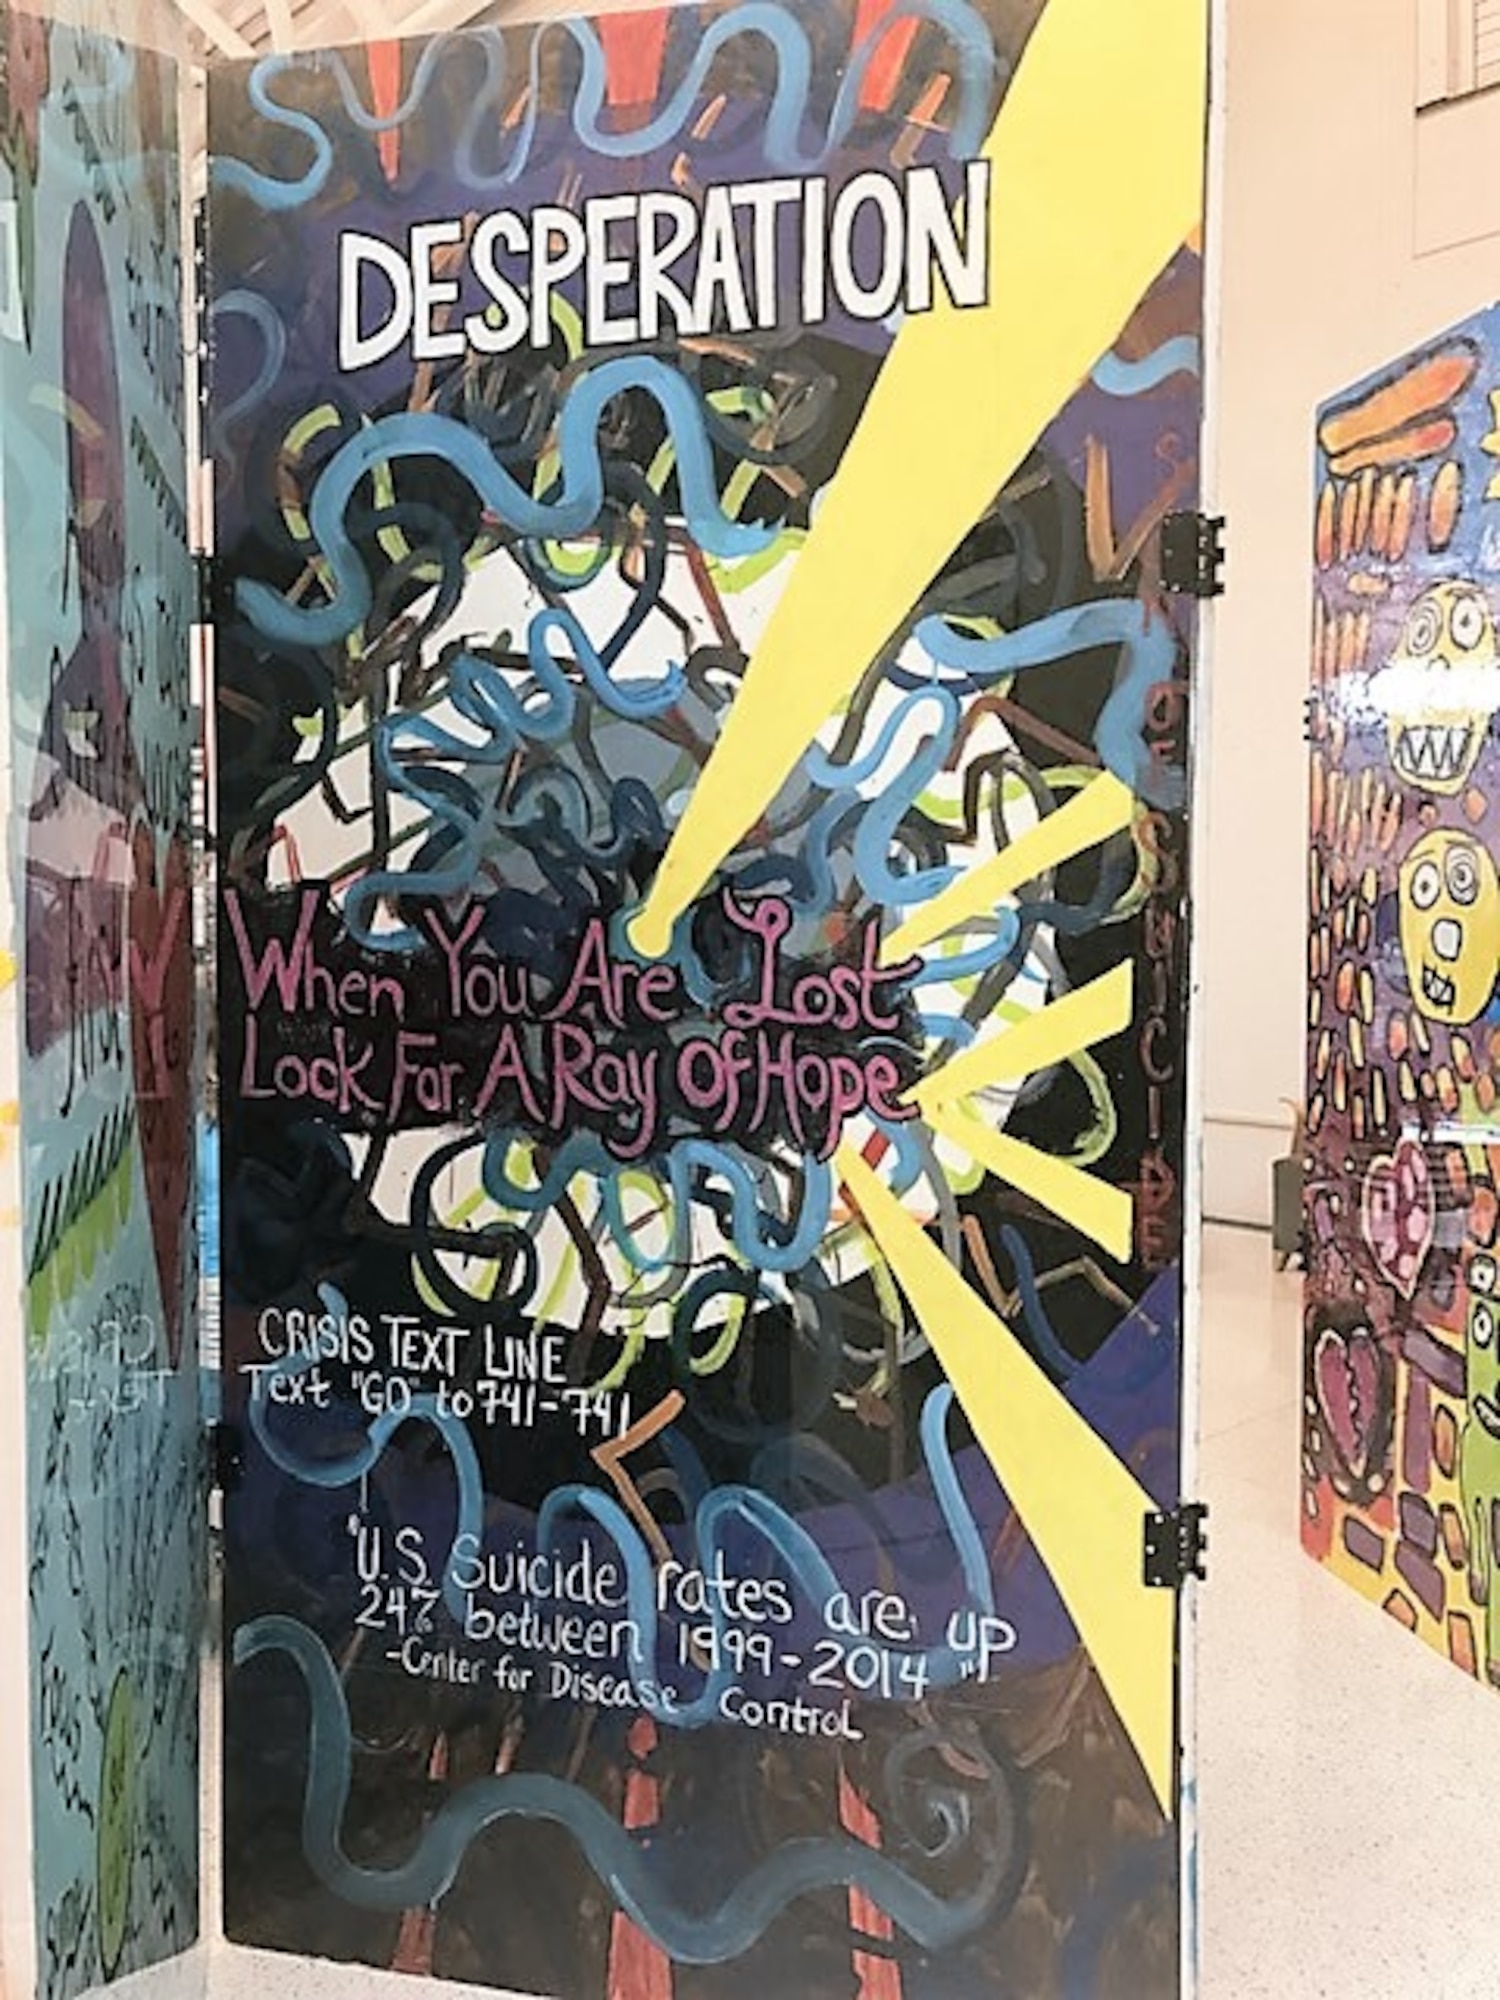 DESPERATION
When You Are Lost
Look For A Ray Of Hope
CRISIS TEXT LINE
Text "GO" to 741-741
"U.S. Suicide rates are up
24% between 1999-2014"
-Center for Disease Control
OF
SUICIDE